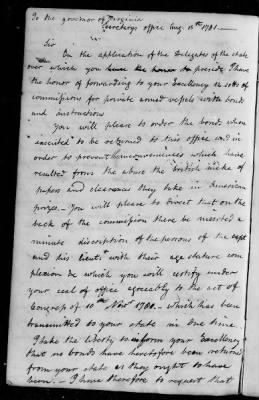 To the governor of Virginia
Secretarys office Aug. 15th 1781
Sir
On the application of the Delegates of the state
over which you have the honor to preside I have
the honor of forwarding to your Excellency setts of
commissions for private armed vessels with bonds
and instructions
You will please to order the bonds when
executed to be returned to this office and in
order to prevent inconveniences which have
resulted from the abuse the British make of
papers and clearances they take in American
prizes. You will please to direct that on the
back of the commission there be inserted a
minute discription of the persons of the capt
and his lieuts with their age stature com
plexion &c which you will certify under
your seal of office agreeably to the act of
Congress of 10th Novr 1780. which has been
transmitted to your state in due time
I take the Liberty to inform your Excellency
that no bonds have heretofore been returned
from your state as they ought to have
been. I have therefore to request that